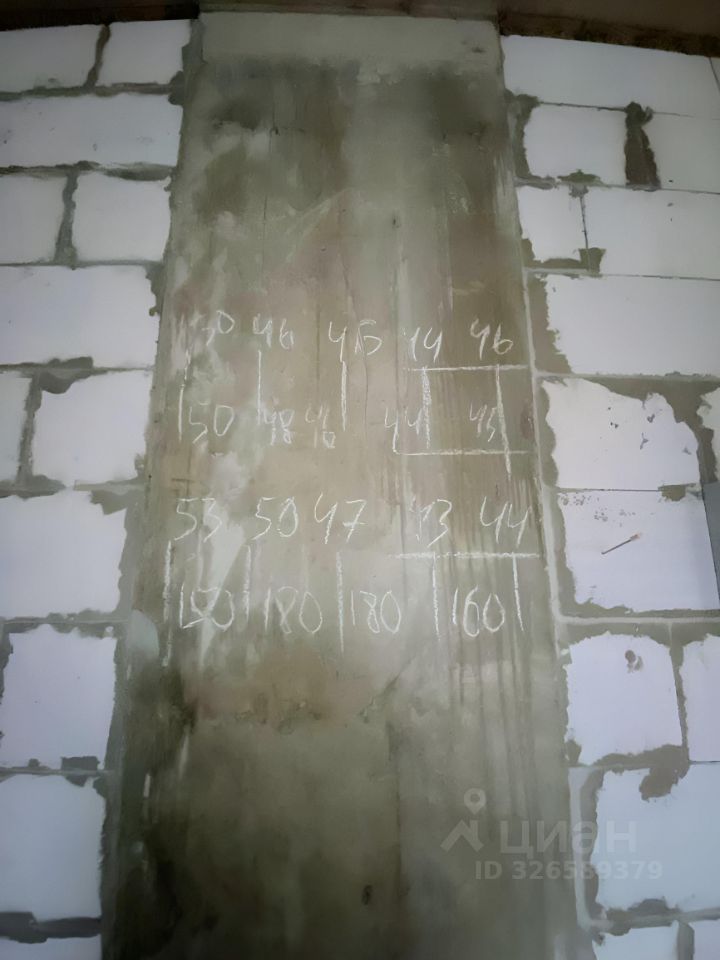 50 46 45 44 46
50 48 46 44 45
53 50 47 43 44
150 180 180 160
циан
ID 326589379